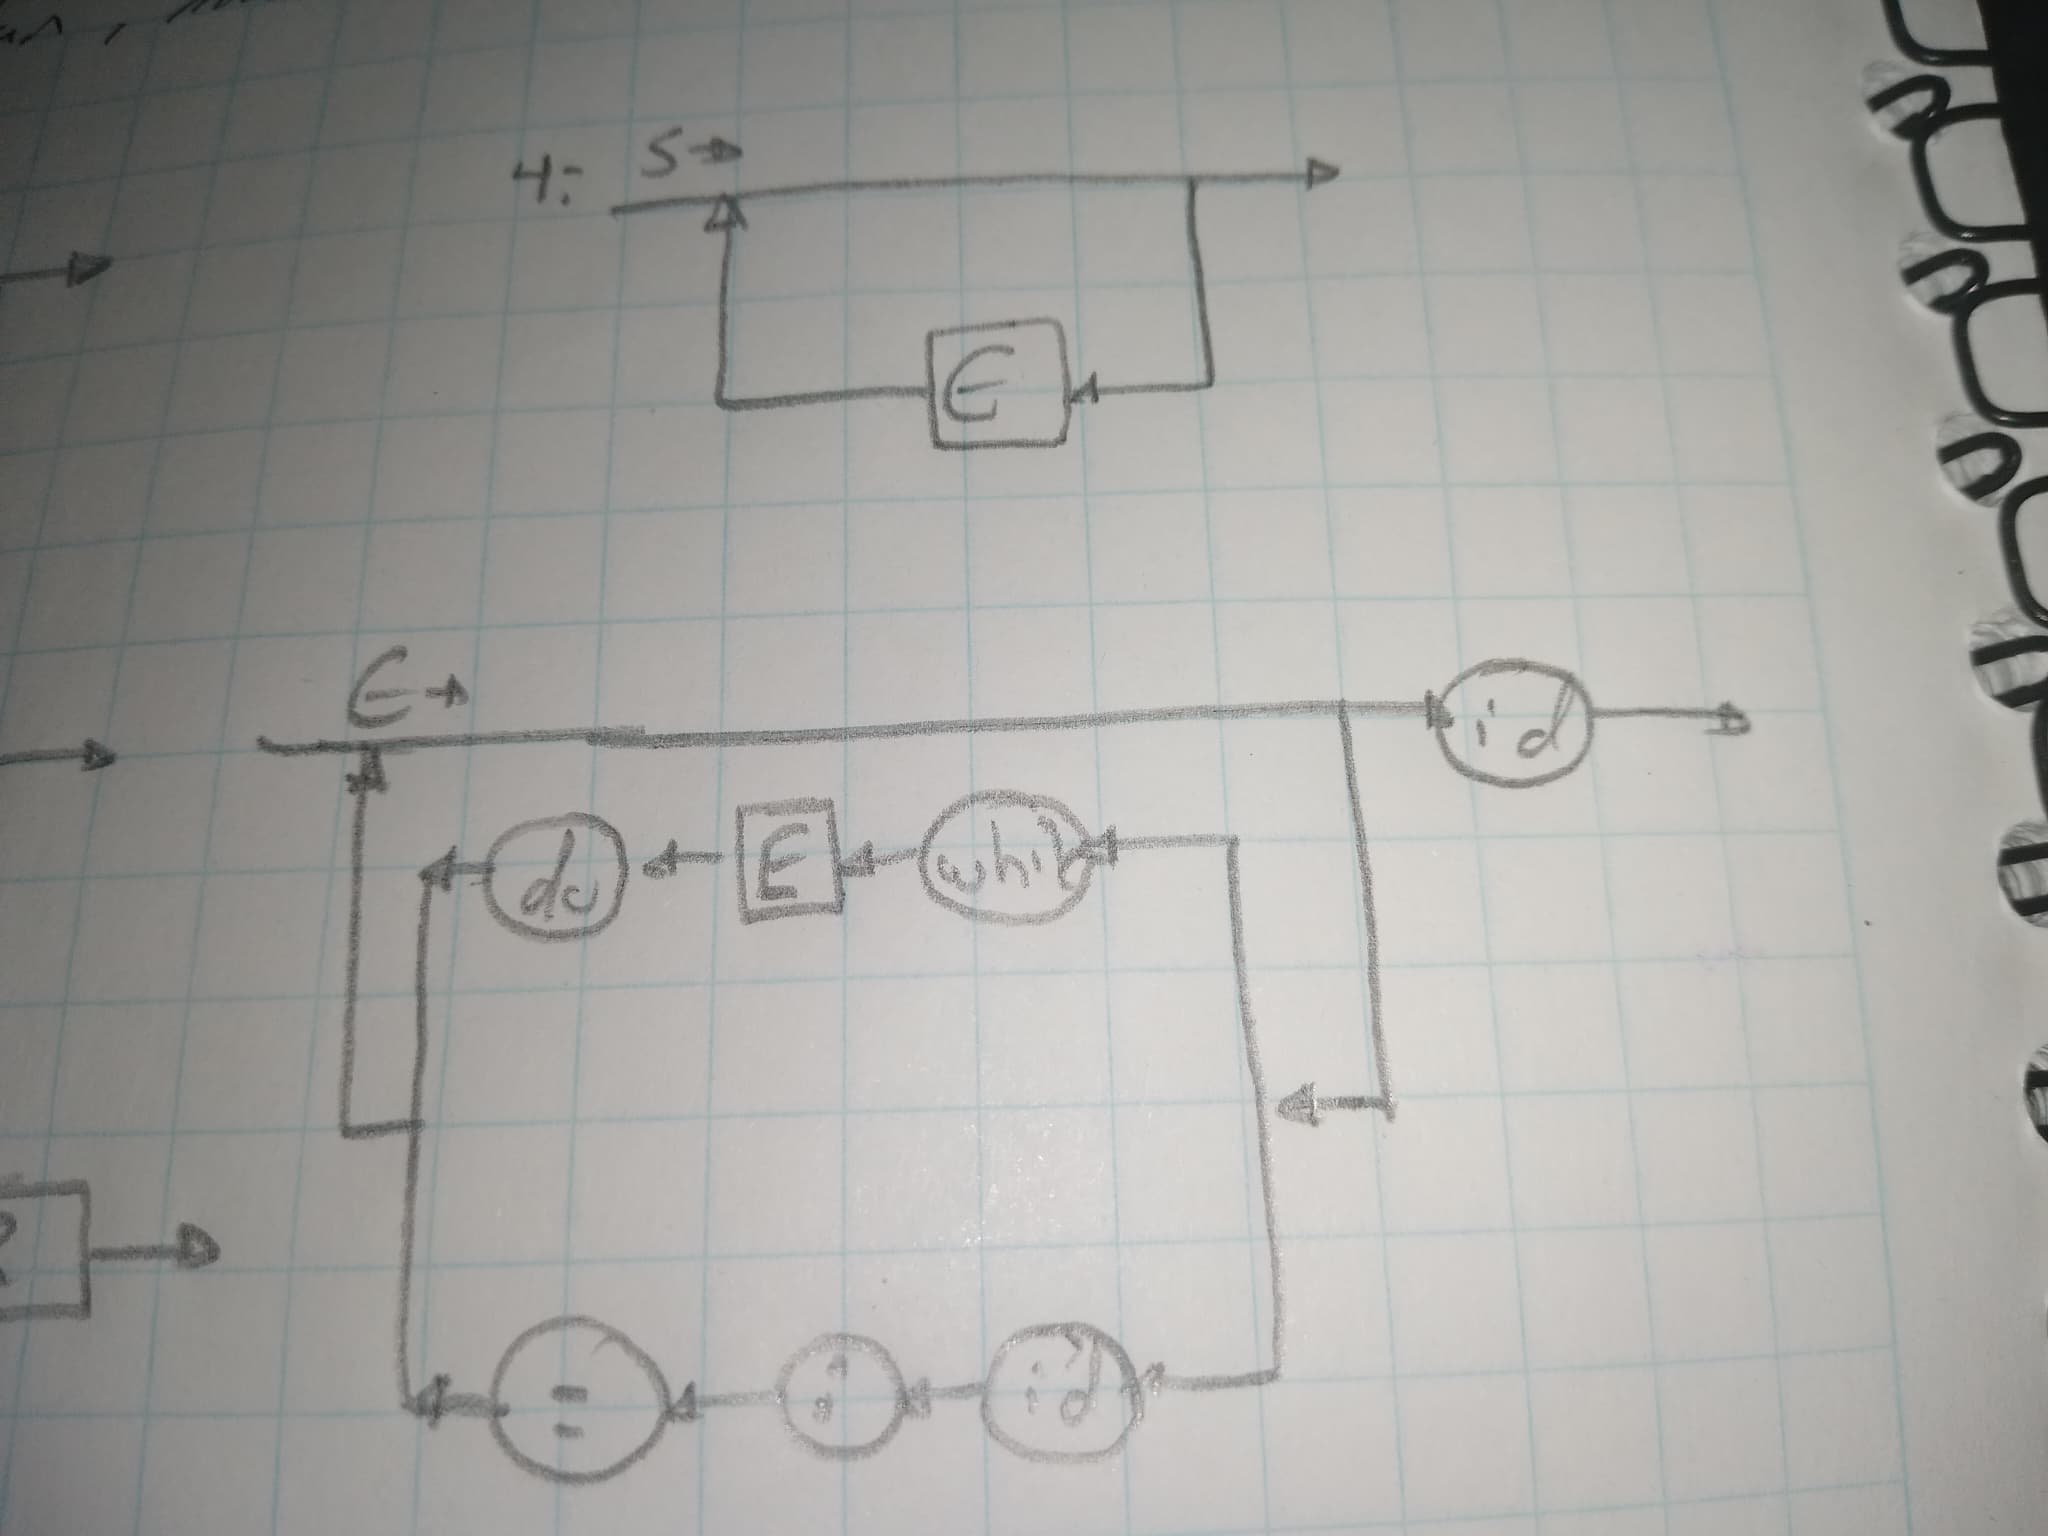 4: S→
E
E→
id
do E while
= : id